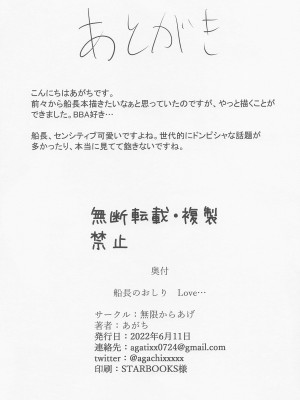 あとがき
こんにちはあがちです。
前々から船長本描きたいなぁと思っていたのですが、やっと描くことが
できました。BBA好き…
船長、センシティブ可愛いですよね。世代的にドンピシャな話題が
多かったり、本当に見てて飽きないですね。
無断転載・複製
禁止
奥付
船長のおしり　Love…
サークル：無限からあげ
著者：あがち
発行日：2022年6月11日
連絡先：agatixx0724@gmail.com
twitter：@agachixxxxx
印刷：STARBOOKS様